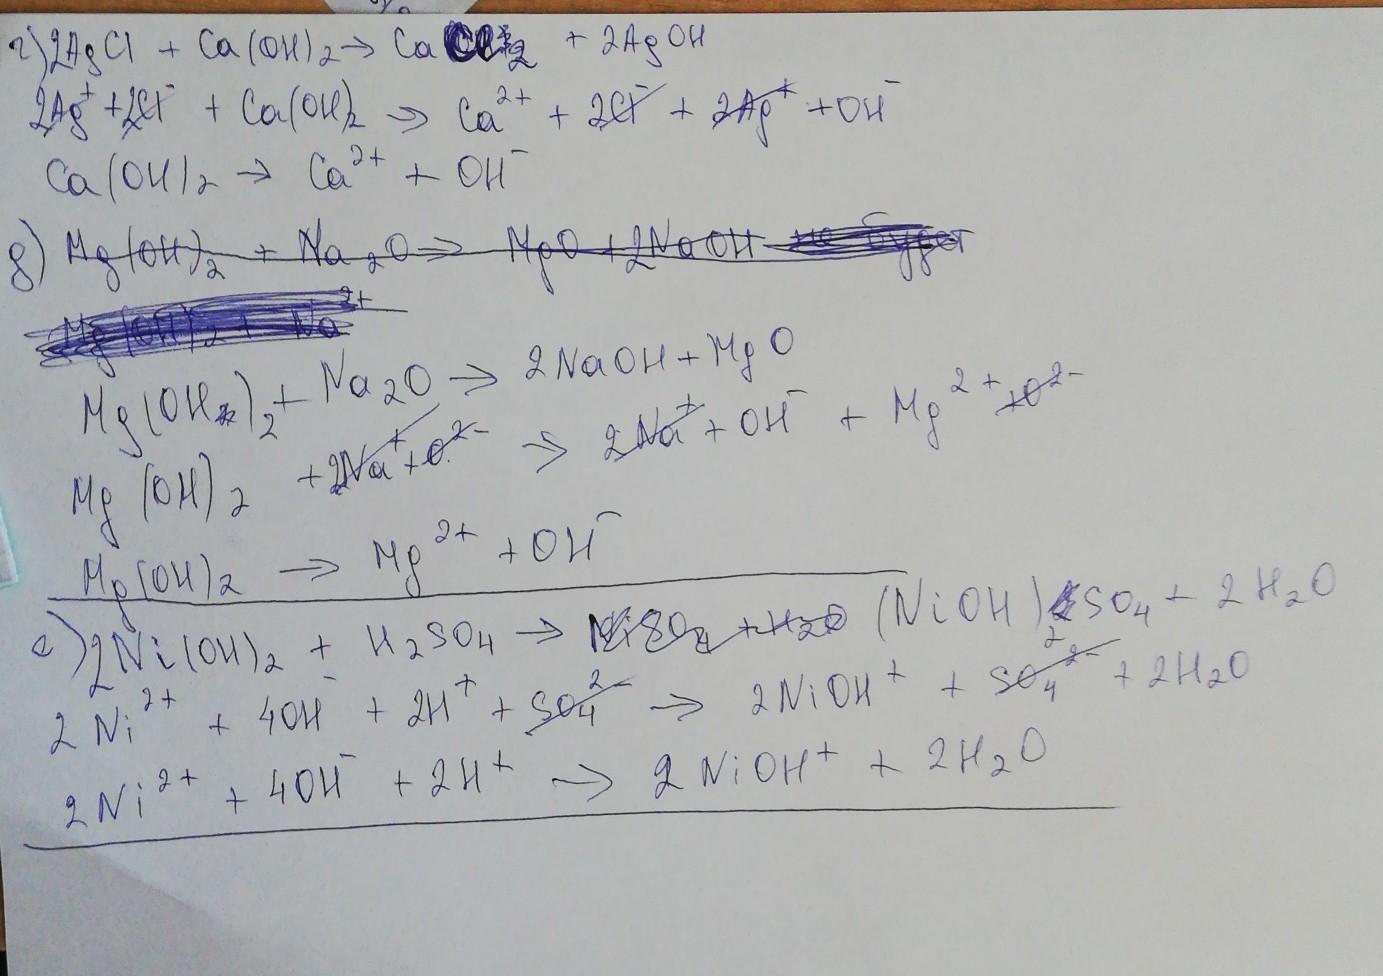 г) 2AgCl + Ca(OH)2 → CaCl2 + 2AgOH
2Ag⁺ + 2Cl⁻ + Ca(OH)2 → Ca²⁺ + 2Cl⁻ + 2Ag⁺ + OH⁻
Ca(OH)2 → Ca²⁺ + OH⁻
д) Mg(OH)2 + Na2O → MgO + 2NaOH не будет
Mg(OH)2 + Na²⁺
Mg(OH)2 + Na2O → 2NaOH + MgO
Mg(OH)2 + 2Na⁺ + O²⁻ → 2Na⁺ + OH⁻ + Mg²⁺ + O²⁻
Mg(OH)2 → Mg²⁺ + OH⁻
е) 2Ni(OH)2 + H2SO4 → NiSO4 + H2O (NiOH)2SO4 + 2H2O
2Ni²⁺ + 4OH⁻ + 2H⁺ + SO4²⁻ → 2NiOH⁺ + SO4²⁻ + 2H2O
2Ni²⁺ + 4OH⁻ + 2H⁺ → 2NiOH⁺ + 2H2O